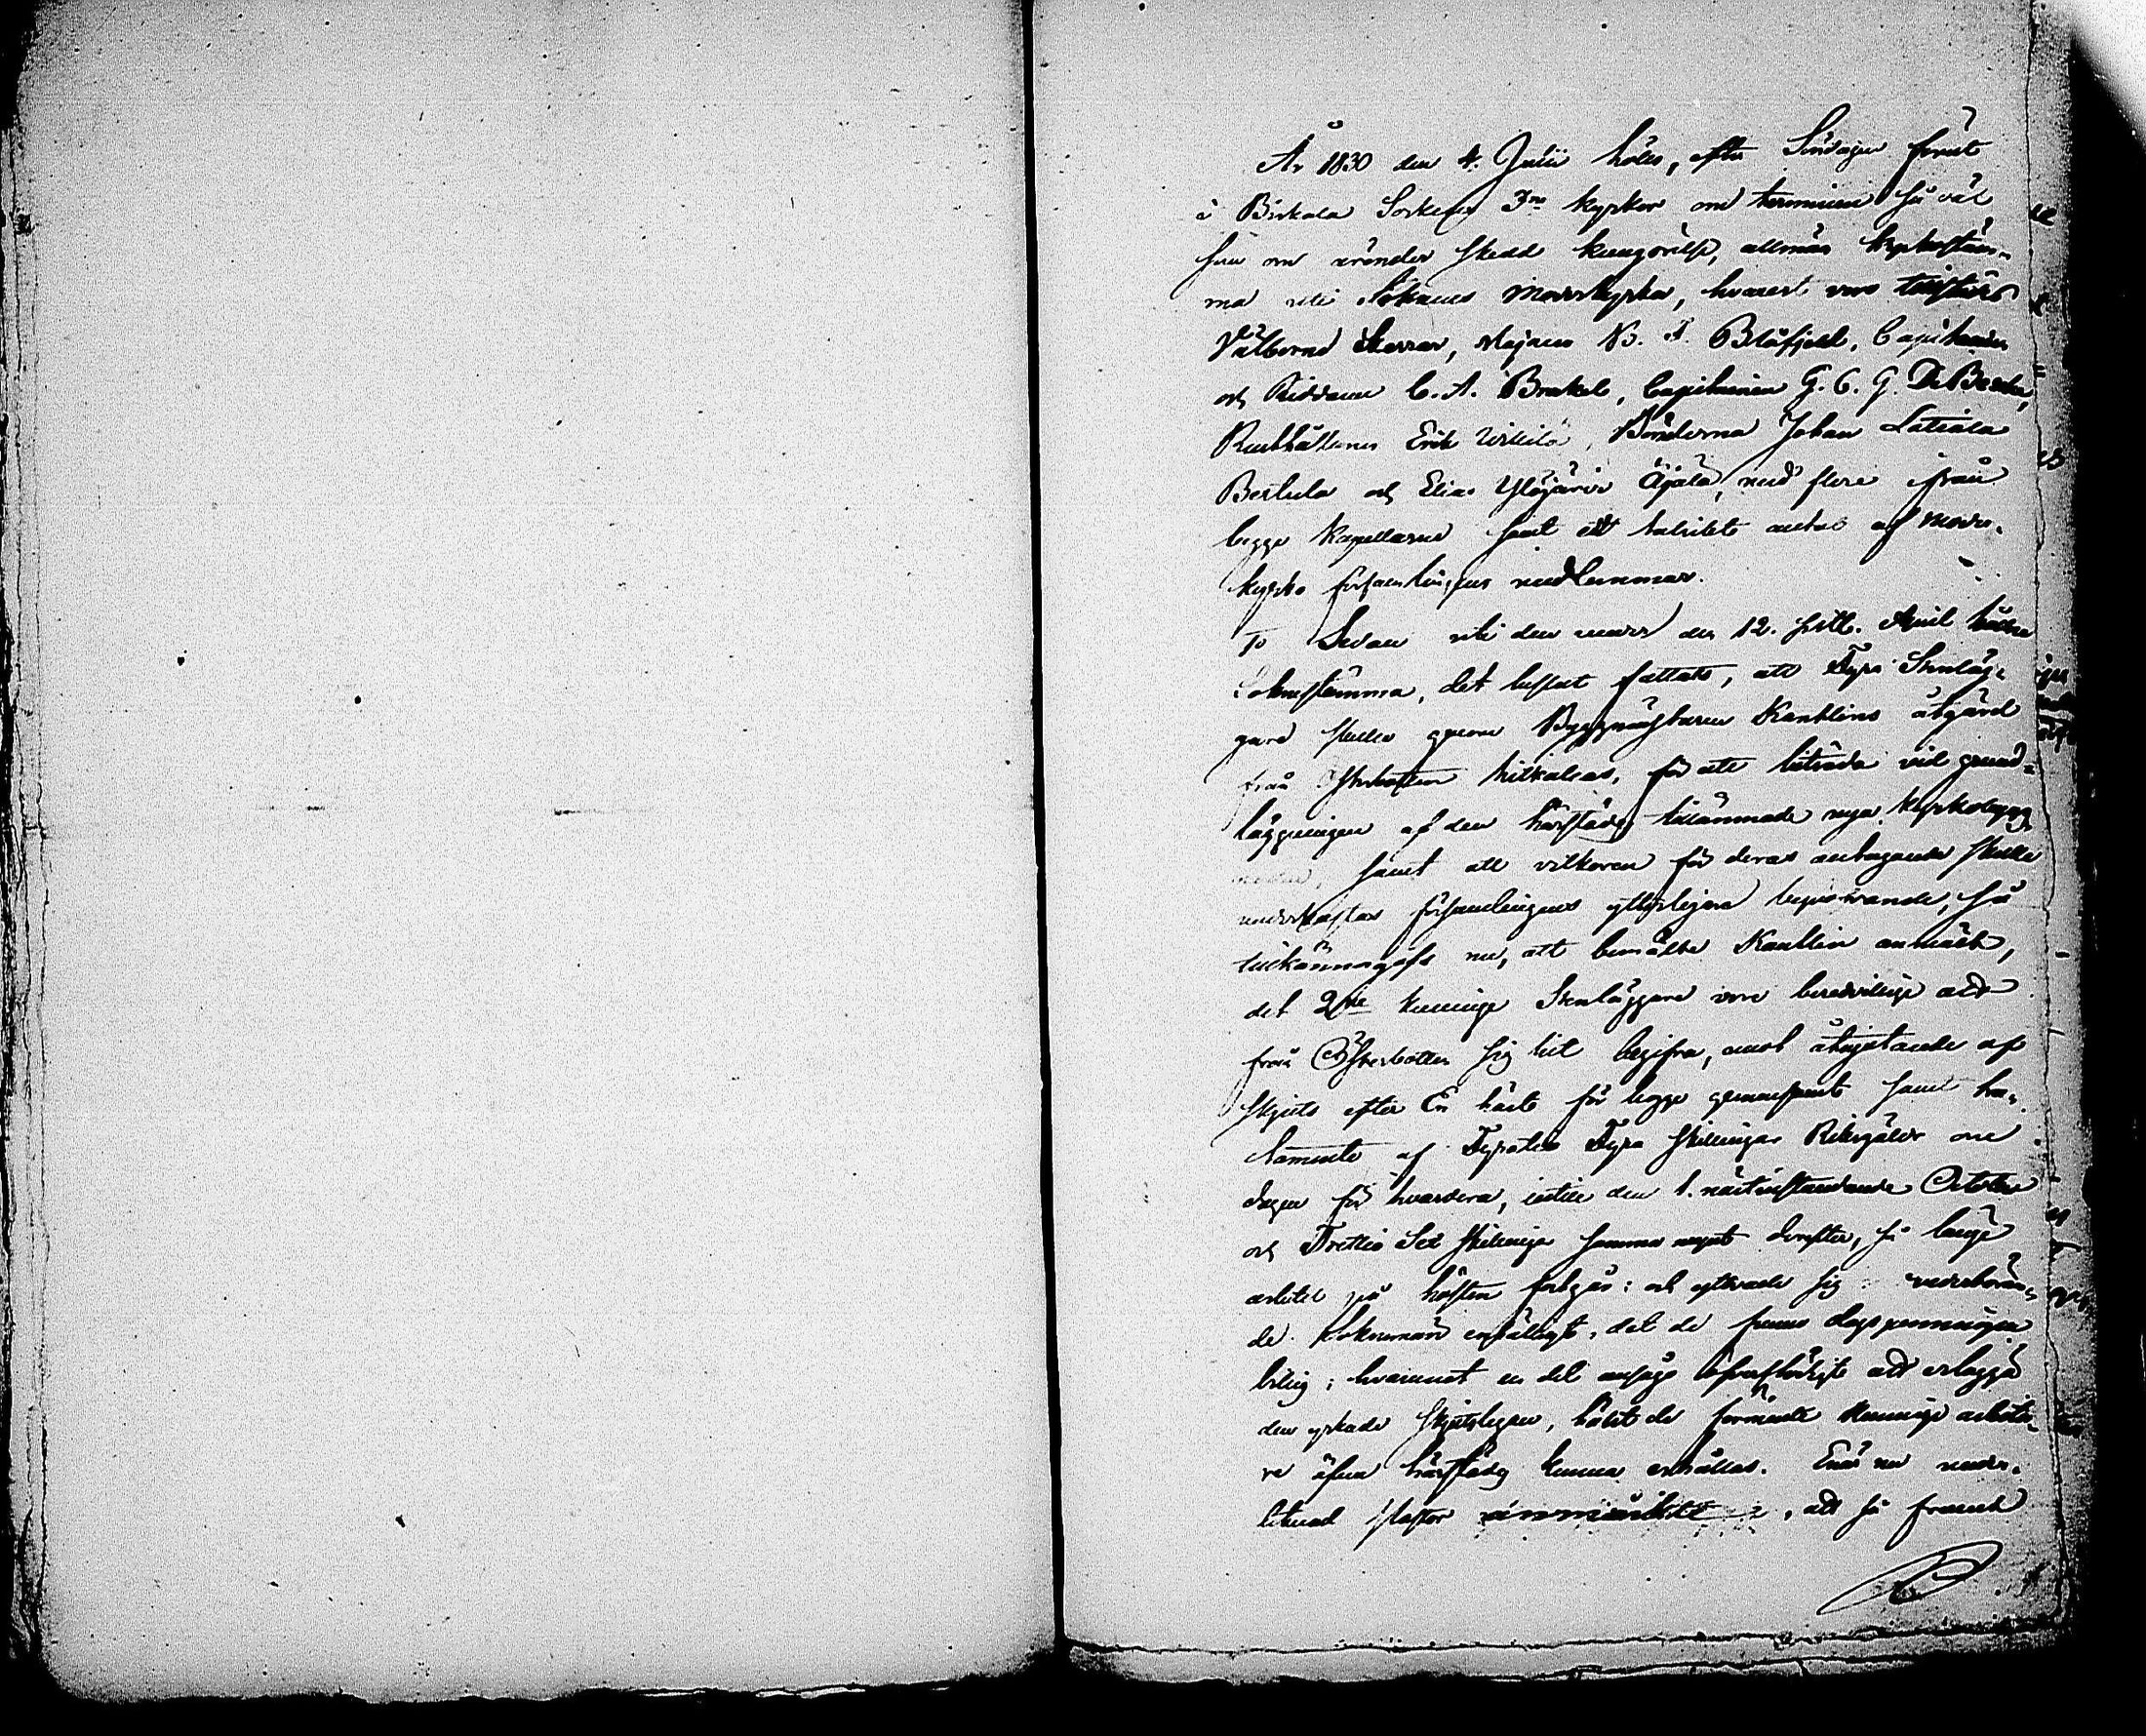 År 1830 den 4. Julii höles, efter Söndagen förut
i Birkala Sockens 3ne kyrkor om terminen så väl
som om ärender skedd kungörelse, allmän kyrkostäm-
ma uti Soknens Moderkyrka, hvarest voro tillstädes
Välborne Herrar, Majoren B. A. Blåfjeld, Capitainen
och Riddaren C. A. Brakel, Capitainen G. C. G. De
Rusthållaren Erik Wikilä, Bönderna Johan Latiala
Bertula och Elias Ylöjärvi Äijälä, med flere ifrån
begge Kapellerne samt ett talrikt antal af Moder-
kyrko församlingens medlemmar.
Sedan uti den under den 12. sistl. April hållne
Soknestämma, det beslut fattats, att Fyra Stenläg-
gare skulle genom Byggmästaren Kantlins åtgärd
från Österbotten hitkallas, för att biträda vid grund-
läggningen af den härstädes tillämnade nya kyrkobygg-
naden, samt att vilkoren för deras antagande skulle
underkastas församlingens ytterligare bepröfvande, så
tillkännagafs nu, att bemälte Kantlin anmält,
det 2ne kunnige Stenläggare vore beredvillige att
från Österbotten sig hit begifva, emot åtnjutande af
skjuts efter En häst för begge gemensamt samt
af Fyratio Fyra skillingar Riksgälds om
dagen för hvardera, intill den 1. nästinstundande October
och Trettio Sex skillingar samma mynt derefter, så länge
arbetet på hösten fortgår: och yttrade sig vederböran-
de Soknemän enhälligt, det de funno dagspenningen
billig; hvaremot en del ansåge öfverflödigt att erlägga
den yrkade skjutslegan, hälst de förmente kunnige arbeta-
re äfven härstädes kunna erhållas. Enär nu
, att så framt